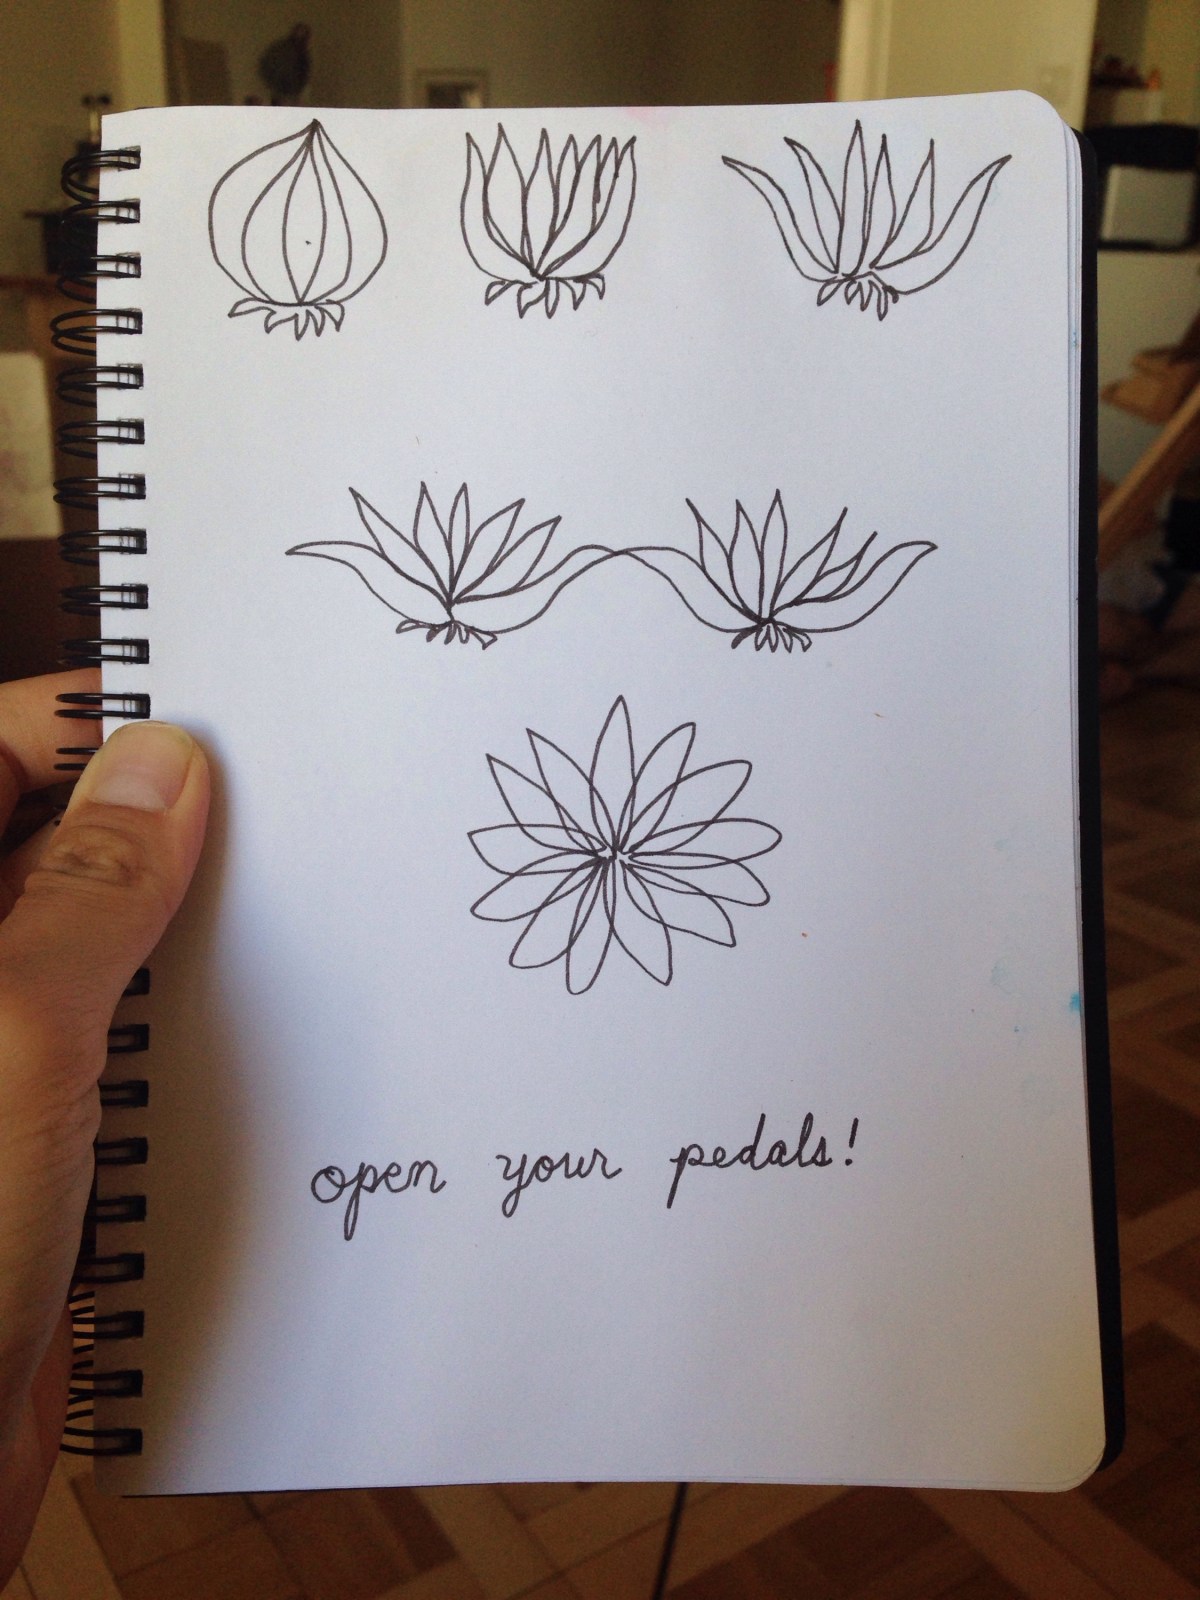 open your pedals!